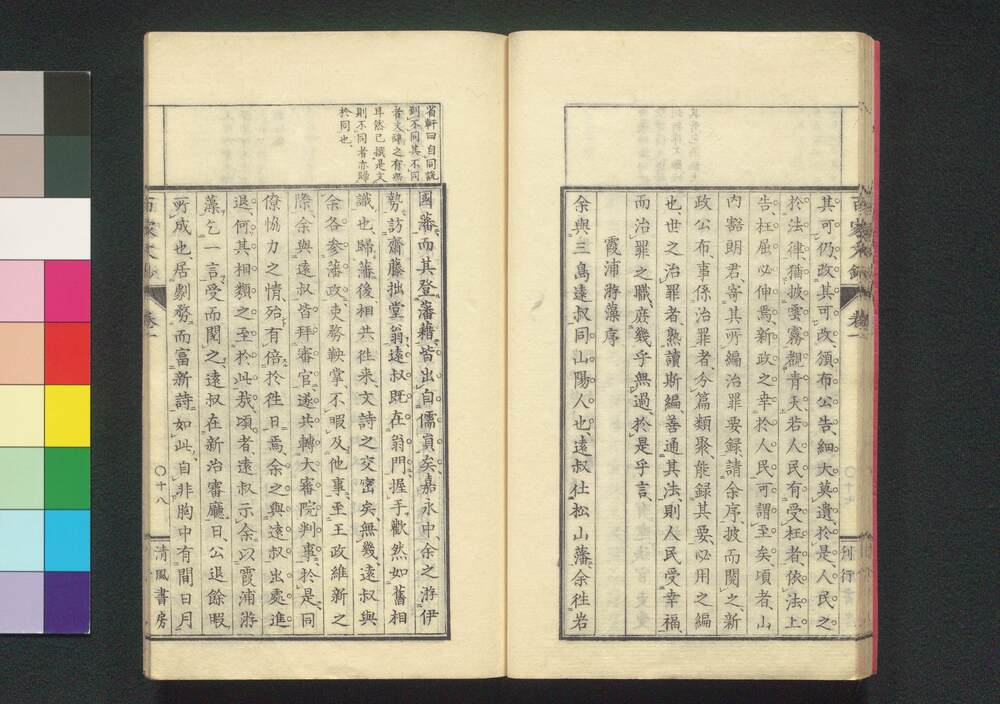 其可仍、改其可改、頒布公告、細大莫遺、於是、人民之
於法律、猶披雲霧觀青天、若人民有受枉者、依法上
告、枉屈必伸焉、新政之幸於人民、可謂至矣、頃者、山
內豁朗君、寄其所編治罪要錄、請余序、披而閱之、新
政公布、事係治罪者、分篇類聚、能錄其要、必用之編
也、世之治罪者、熟讀斯編、善通其法、則人民受幸福、
而治罪之職、庶幾乎無過、於是乎言、
霞浦游藻序
余與三島遠叔、同山陽人也、遠叔仕松山藩、余往岩
國藩、而其登藩籍、皆出自儒員矣、嘉永中、余之游伊
勢、訪齋藤拙堂翁、遠叔既在翁門、握手歡然如舊相
識也、歸藩後相共往來、文詩之交密矣、無幾、遠叔與
余各參藩政、吏務鞅掌、不暇及他事、至王政維新之
際、余與遠叔皆拜審官、遂共轉大審院判事、於是、同
僚協力之情、殆有倍於往日焉、余之與遠叔出處進
退、何其相類之至於此哉、頃者、遠叔示余以霞浦游
藻、乞一言、受而閱之、遠叔在新治審廳日、公退餘暇
所成也、居劇務而富新詩如此、自非胸中有間日月
省軒曰自同說
到不同其不同
者文辭之有無
耳然已撰是文
則不同者亦歸
於同也、
卷一
〇十八
清風書房